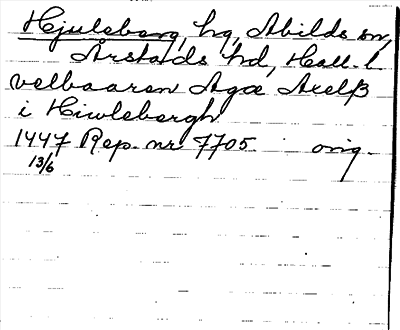 Hjuleberg, hg, Abilds sn,
Årstads hd, Hall. l
velbaaren Agæ Axelß
i Hiwlebergh
1447 Rep. nr 7705 orig.
13/6